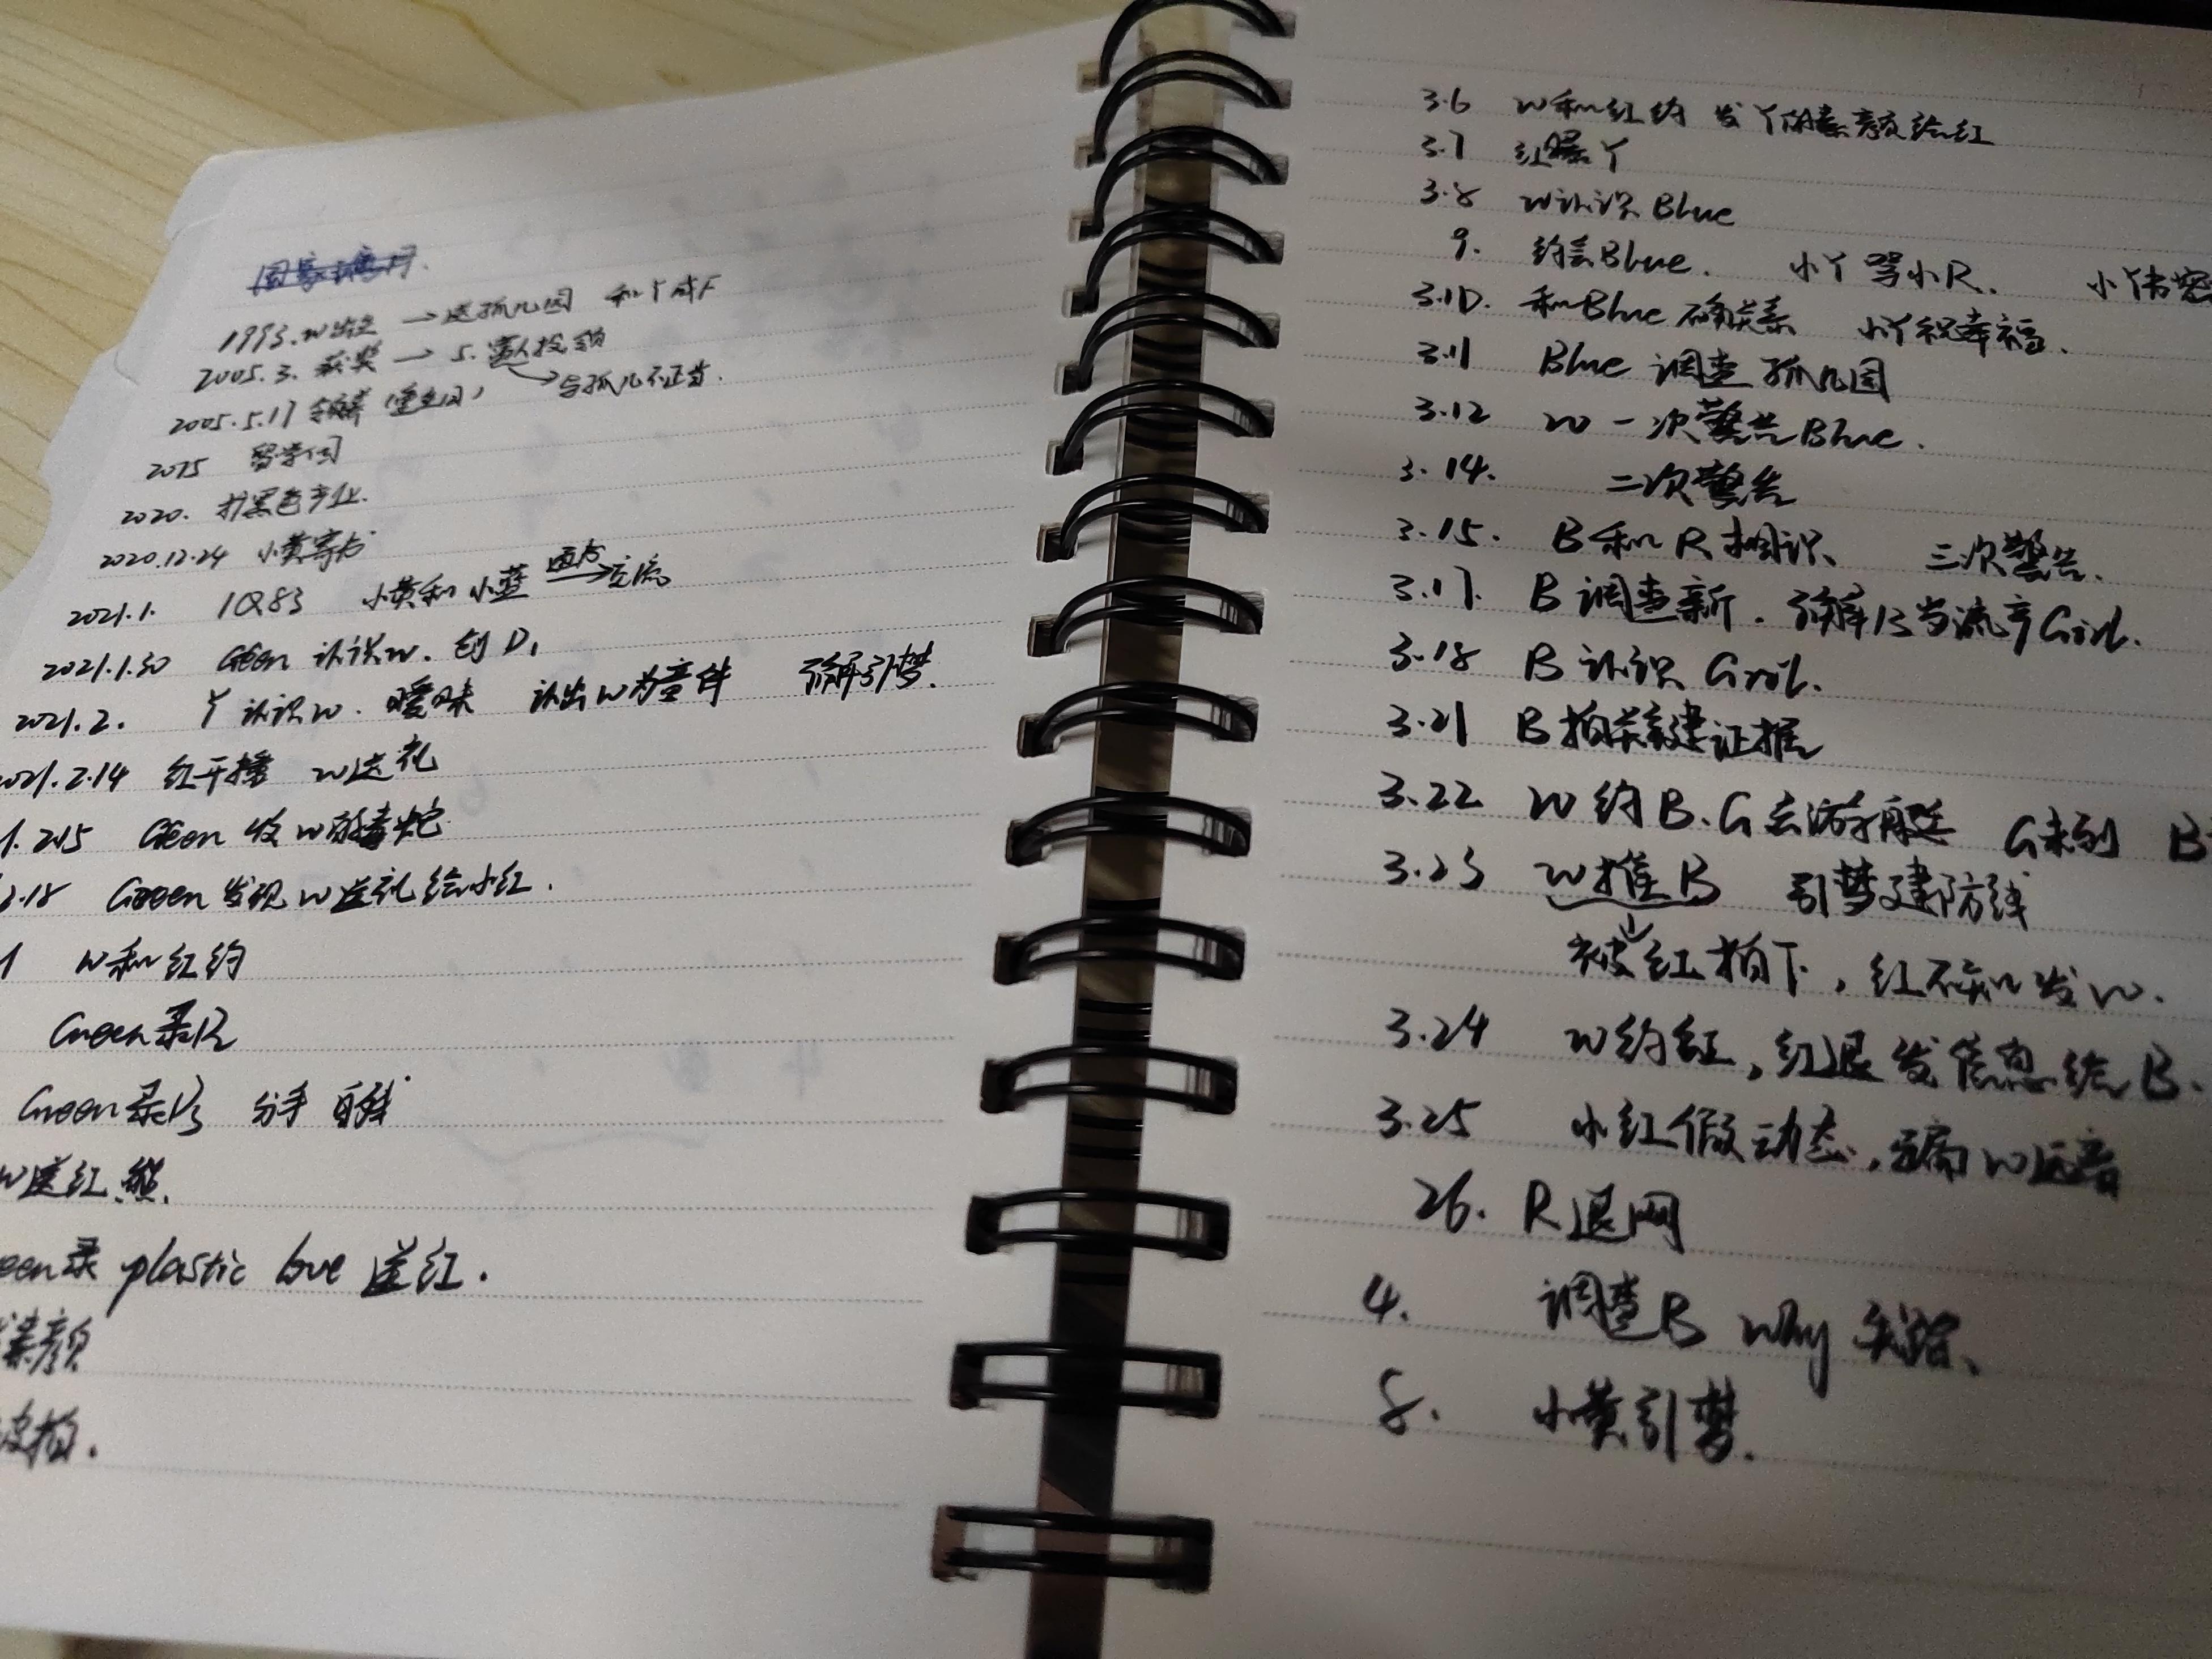 1993. W出生 → 送孤儿园 和丫成F
2005.3. 获奖 → 5. 富人投资
→ 与孤儿不正当.
2005.5.17 (重生日)
2015 留学
2020. 黑色产业.
2020.12.24 小黄寄书
2021.1. 1Q83 小黄和小蓝 →交流
2021.1.30 Green 认识W. 创D1
2021.2. 丫认识W. 暧昧 认出W为 了解引梦.
2021.2.14 红开播 W送礼
1.2.15 Green 收W
2.18 Green 发现W送礼给小红.
1 W和红约
Green录
Green录 分手
W送红熊.
een录 plastic love 送红.
素颜
拍.
3.6 W和红约 发丫的素颜给红
3.7 红曝丫
3.8 W认识Blue
9. 约会Blue. 小丫骂小R. 小丫
3.10. 和Blue确关系 小丫祝幸福.
3.11 Blue 调查孤儿园
3.12 W一次警告Blue.
3.14. 二次警告
3.15. B和R相识 三次警告.
3.17. B调查新. 了解13岁流产Girl.
3.18 B认识Girl.
3.21 B拍 证据
3.22 W约B.G去游艇 G未到 B
3.23 W推B 引梦建防线
↓被红拍下,红不和发W.
3.24 W约红,红退发信息给B.
3.25 小红假动态, W
26. R退网
4. 调查B Why 失踪.
8. 小黄引梦.